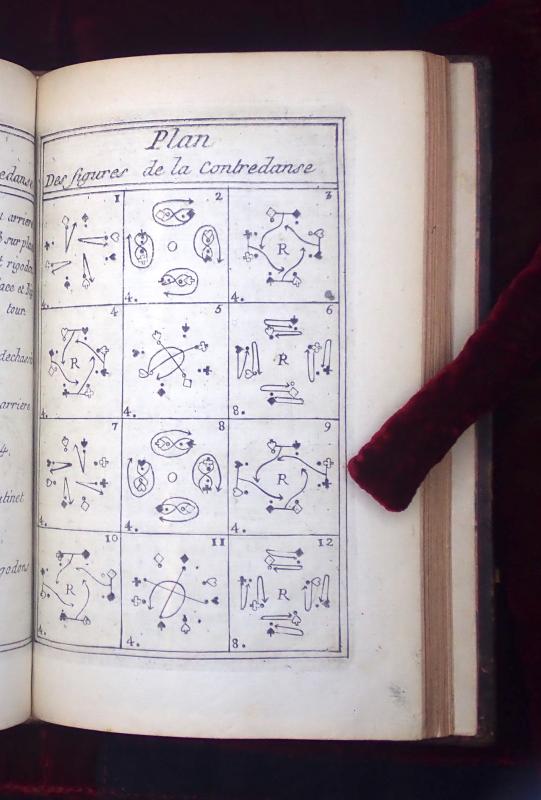 Plan
Des figures de la Contredanse
1 2 3
4. 4. R 4.
4 5 6
R 4. 4. R 8.
7 8 9
4. 4. R 4.
10 11 12
R 4. 4. R 8.
arriere
sur pla
rigodon
face et
tour.
dechas
arriere
4.